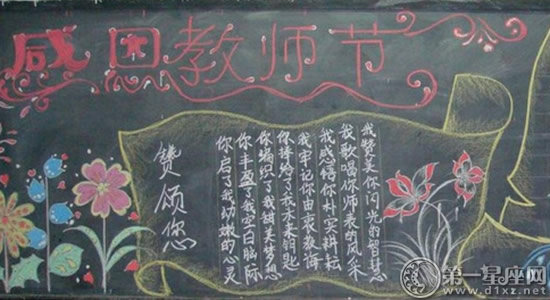 感恩教师节
我赞美你闪光的智慧
我歌唱你师表的风采
我感悟你朴实耕耘
我牢记你由衷教诲
你捧给了我未来钥匙
你编织了我甜美梦想
你丰盈了我空白脑际
你启了我幼嫩的心灵
赞颂您
第一星座网
www.d1xz.net